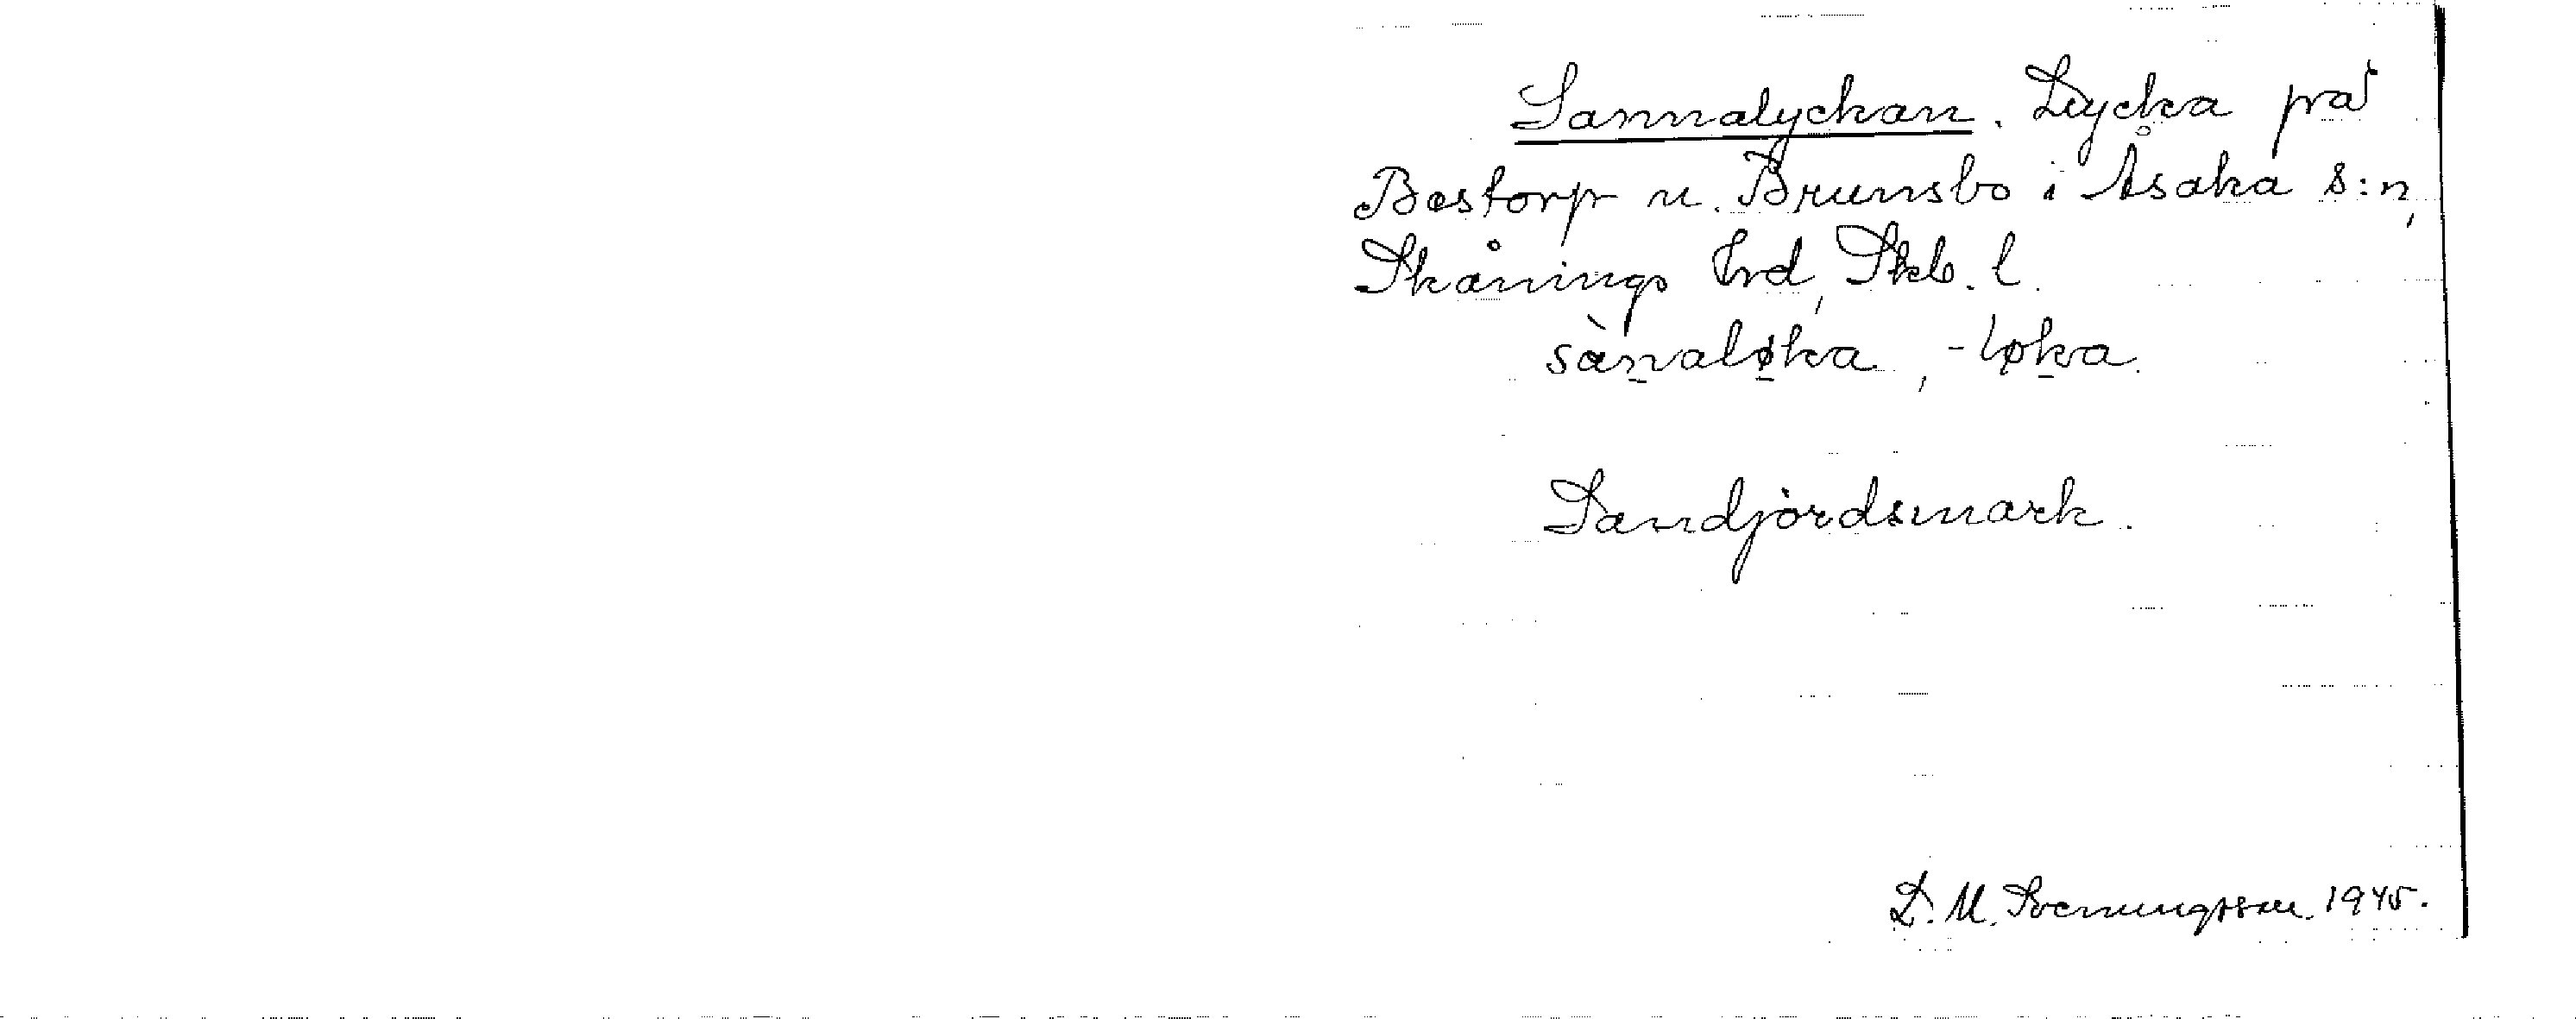 Sannalyckan. Lycka på
Bostorp u. Brunsbo i Åsaka s:n,
Skånings hrd, Skb. l.
sànaløka, -løka.
Sandjördsmark.
D. M. Svenungsson. 1945.